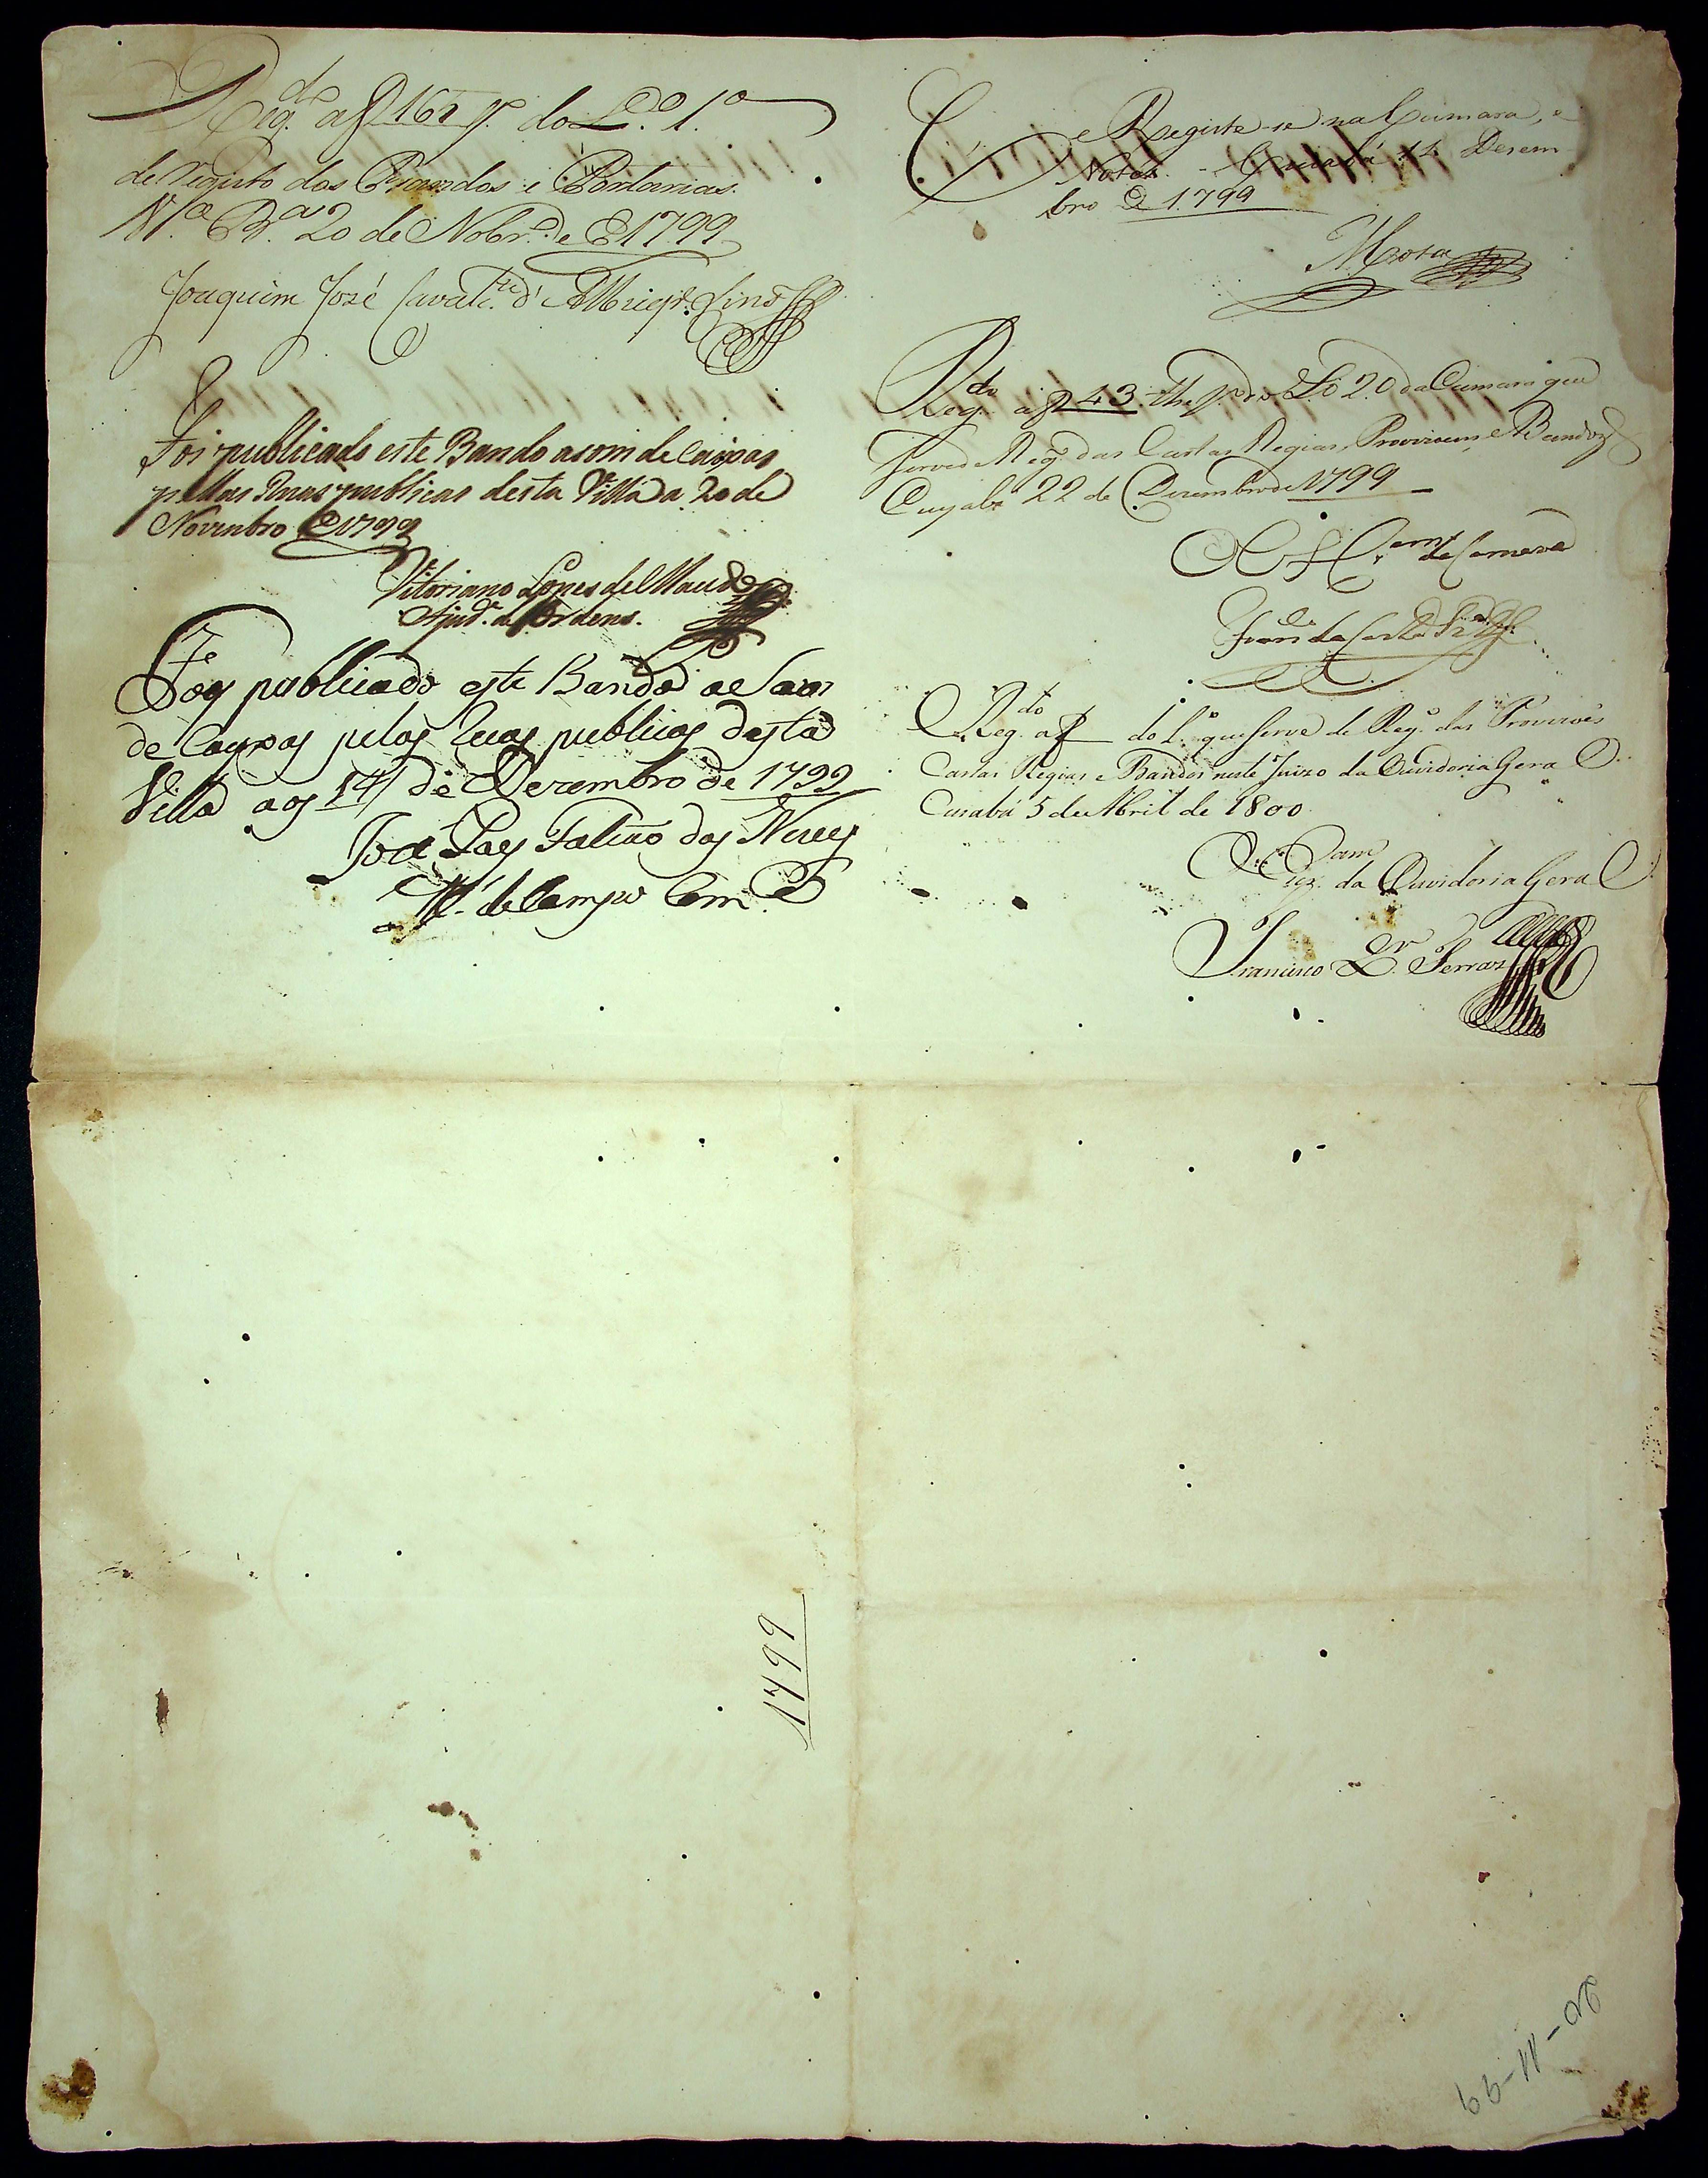 Reg.do a f 161 v. do L.o 1.o
de registo dos Bandos e Portarias.
V.a B.a 20 de Nobr.o de 1799
Joaquim José Cavalc.te d'Albuqr.e Lins
Foi publicado este Bando a som de Caixas
pellas Ruas publicas desta Villa a 20 de
Novembro de 1799
Vitoriano Lopes de Macedo
Ajud.e de Ordens.
Foy publicado este Bando ao Som
de Cayxas pelas Ruas publicas desta
Villa aos 14 de Dezembro de 1799
Joze Paes Falcão das Neves
M.e de Campo Com.e
e Registe-se na Camara, e
Notés. - Cuiabá 14 Dezem
bro de 1799
Reg.do a f 43 the v. do L.o 2.o da Camara que
serve de Reg.o das Cartas Regias, Provizoens, e Bandos
Cuyabá 22 de Dezembro de 1799
O Escr.am da Camera
Reg.do a f do L.o que serve de Reg.o das Provizoẽs
Cartas Regias e Bandos neste Juizo da Ouvidoria Geral.
Cuiabá 5 de Abril de 1800
O Escr.am da Ouvidoria Geral
Francisco L. Ferraz
1799
20-11-99